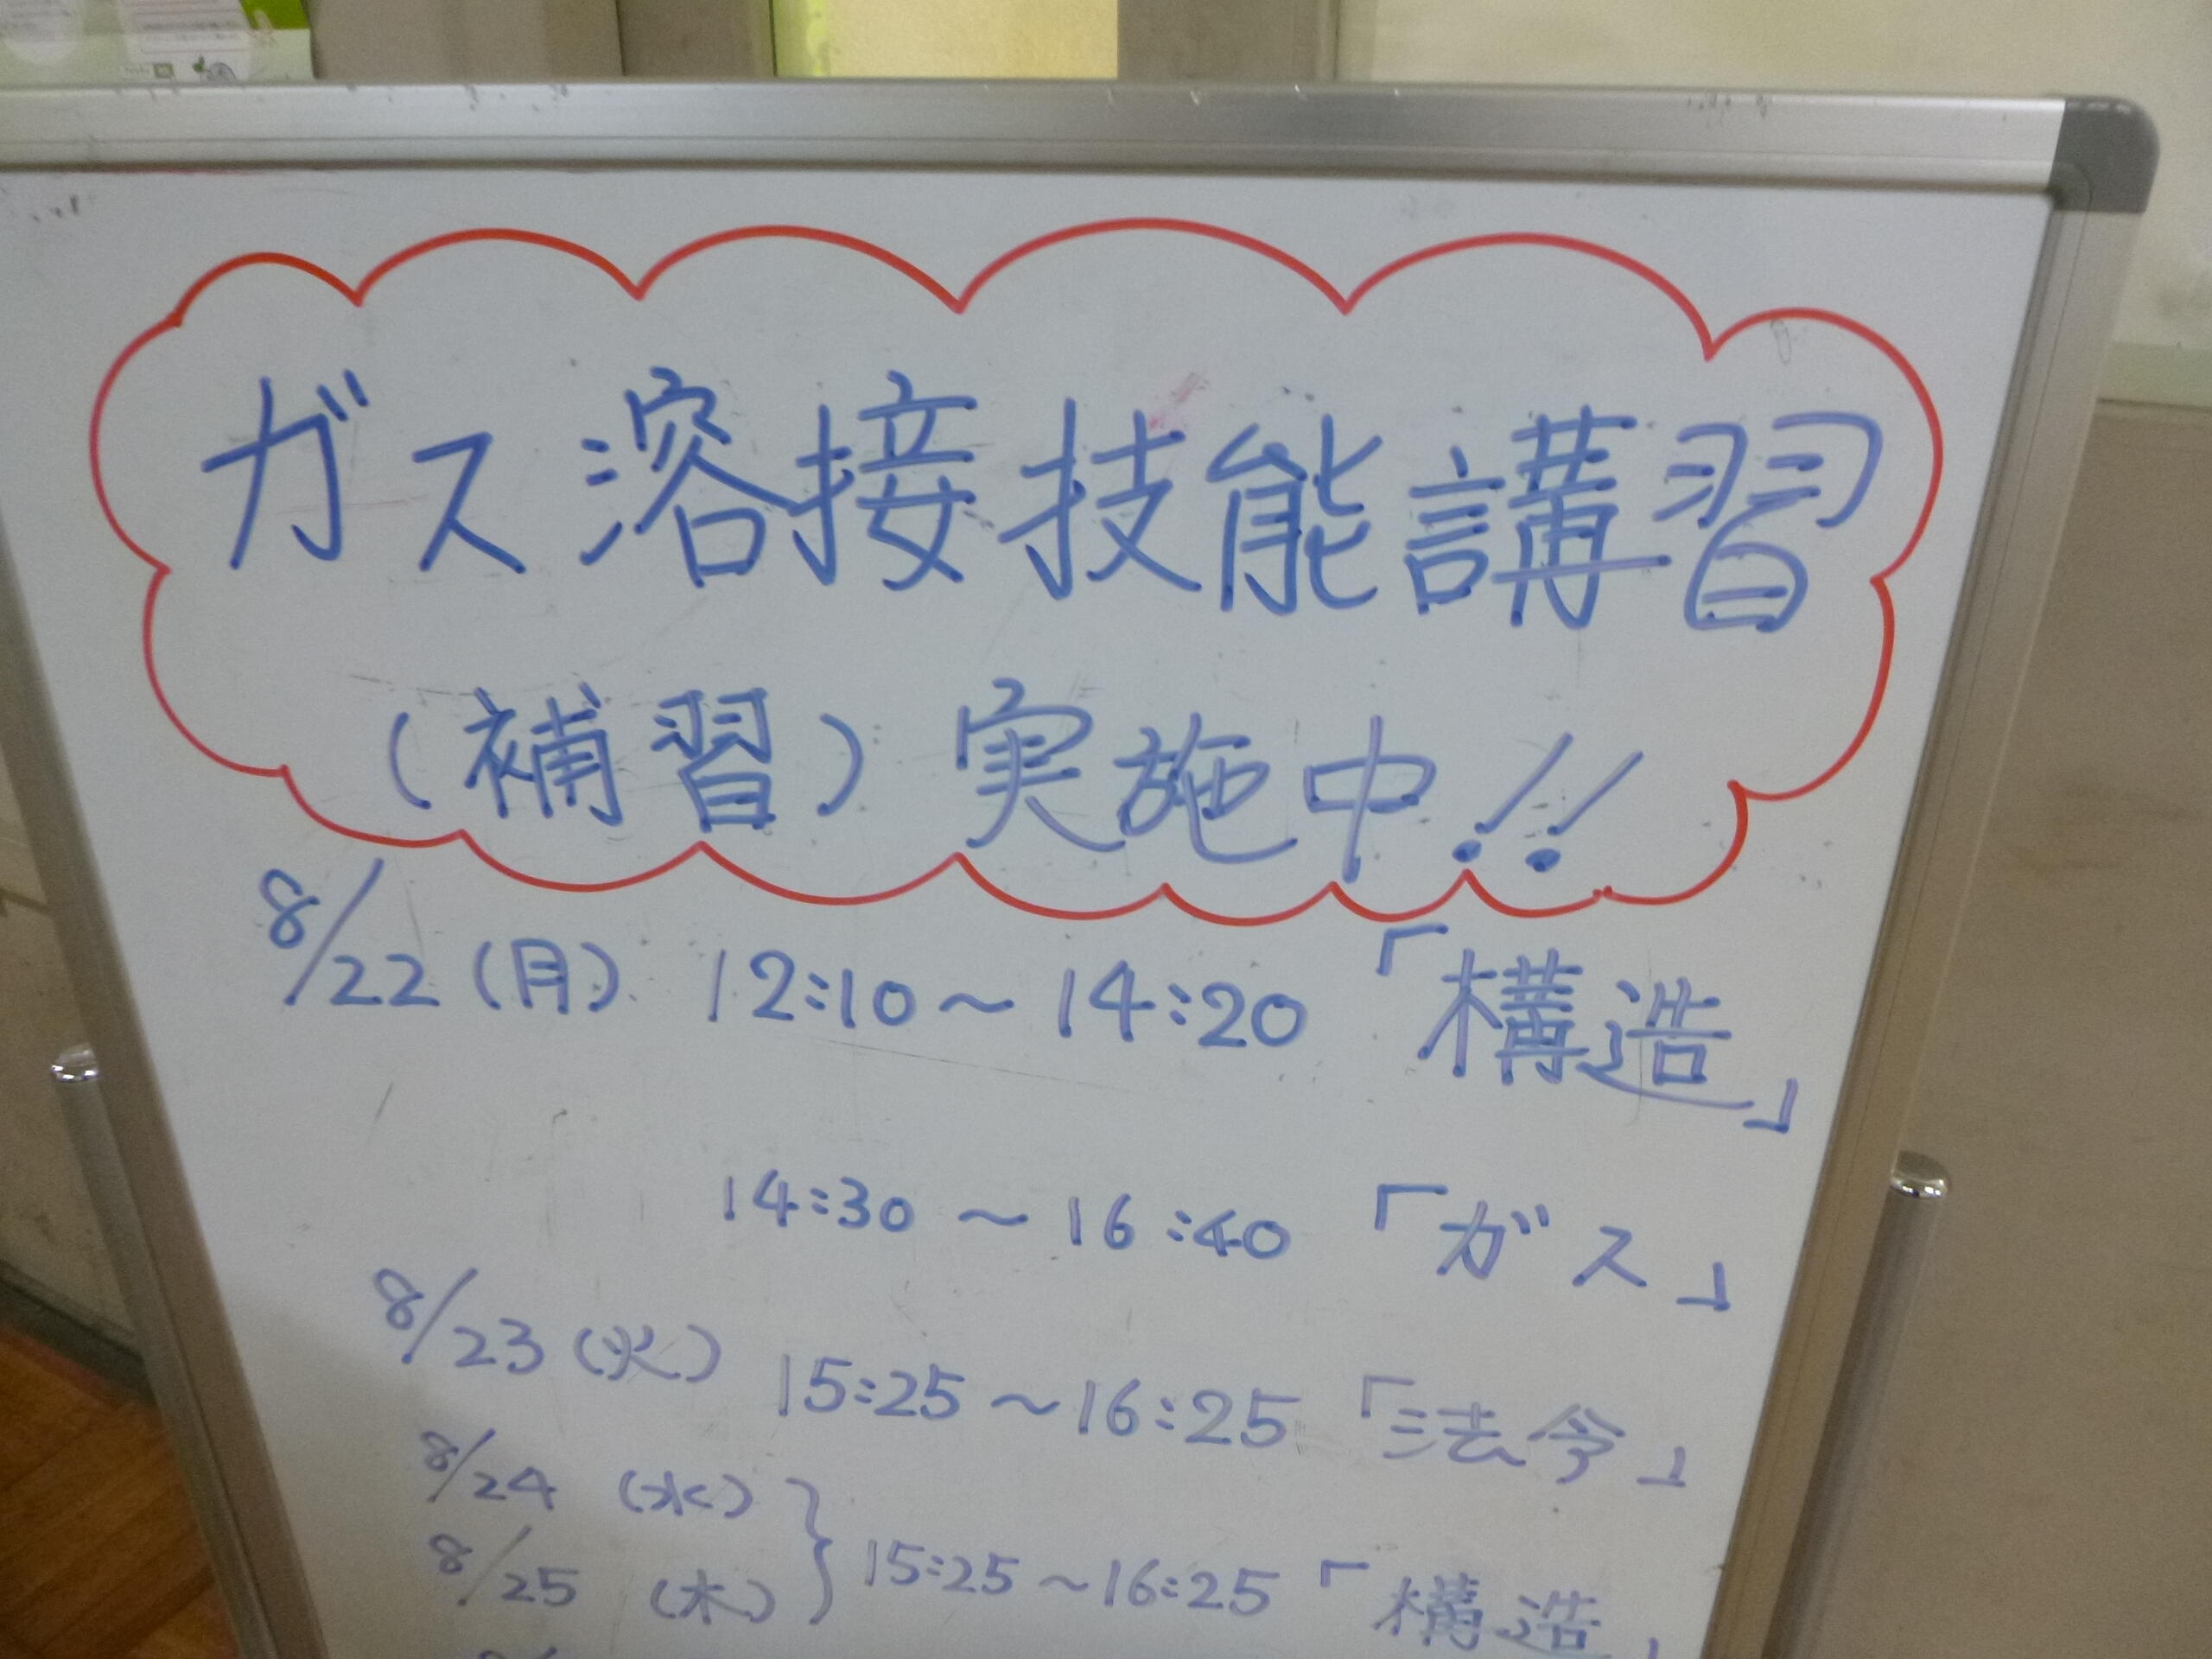 ガス溶接技能講習
(補習)実施中!!
8/22(月) 12:10~14:20「構造」
14:30~16:40「ガス」
8/23(火) 15:25~16:25「法令」
8/24(水)
8/25(木)
15:25~16:25「構造」